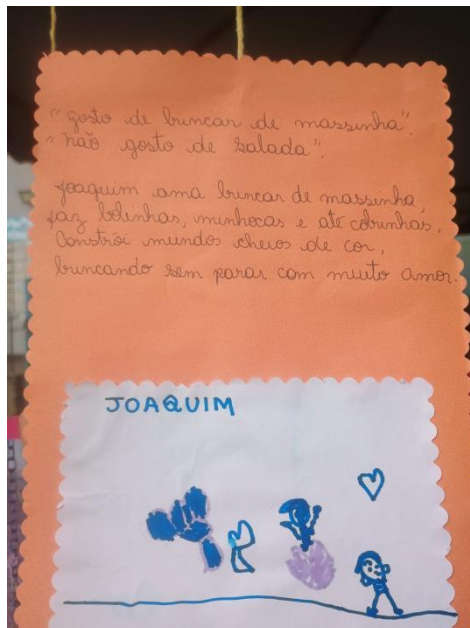 "gosto de brincar de massinha".
"não gosto de salada".
Joaquim ama brincar de massinha,
faz bolinhas, minhocas e até cobrinhas,
Constrói mundos cheios de cor,
brincando sem parar com muito amor.
JOAQUIM